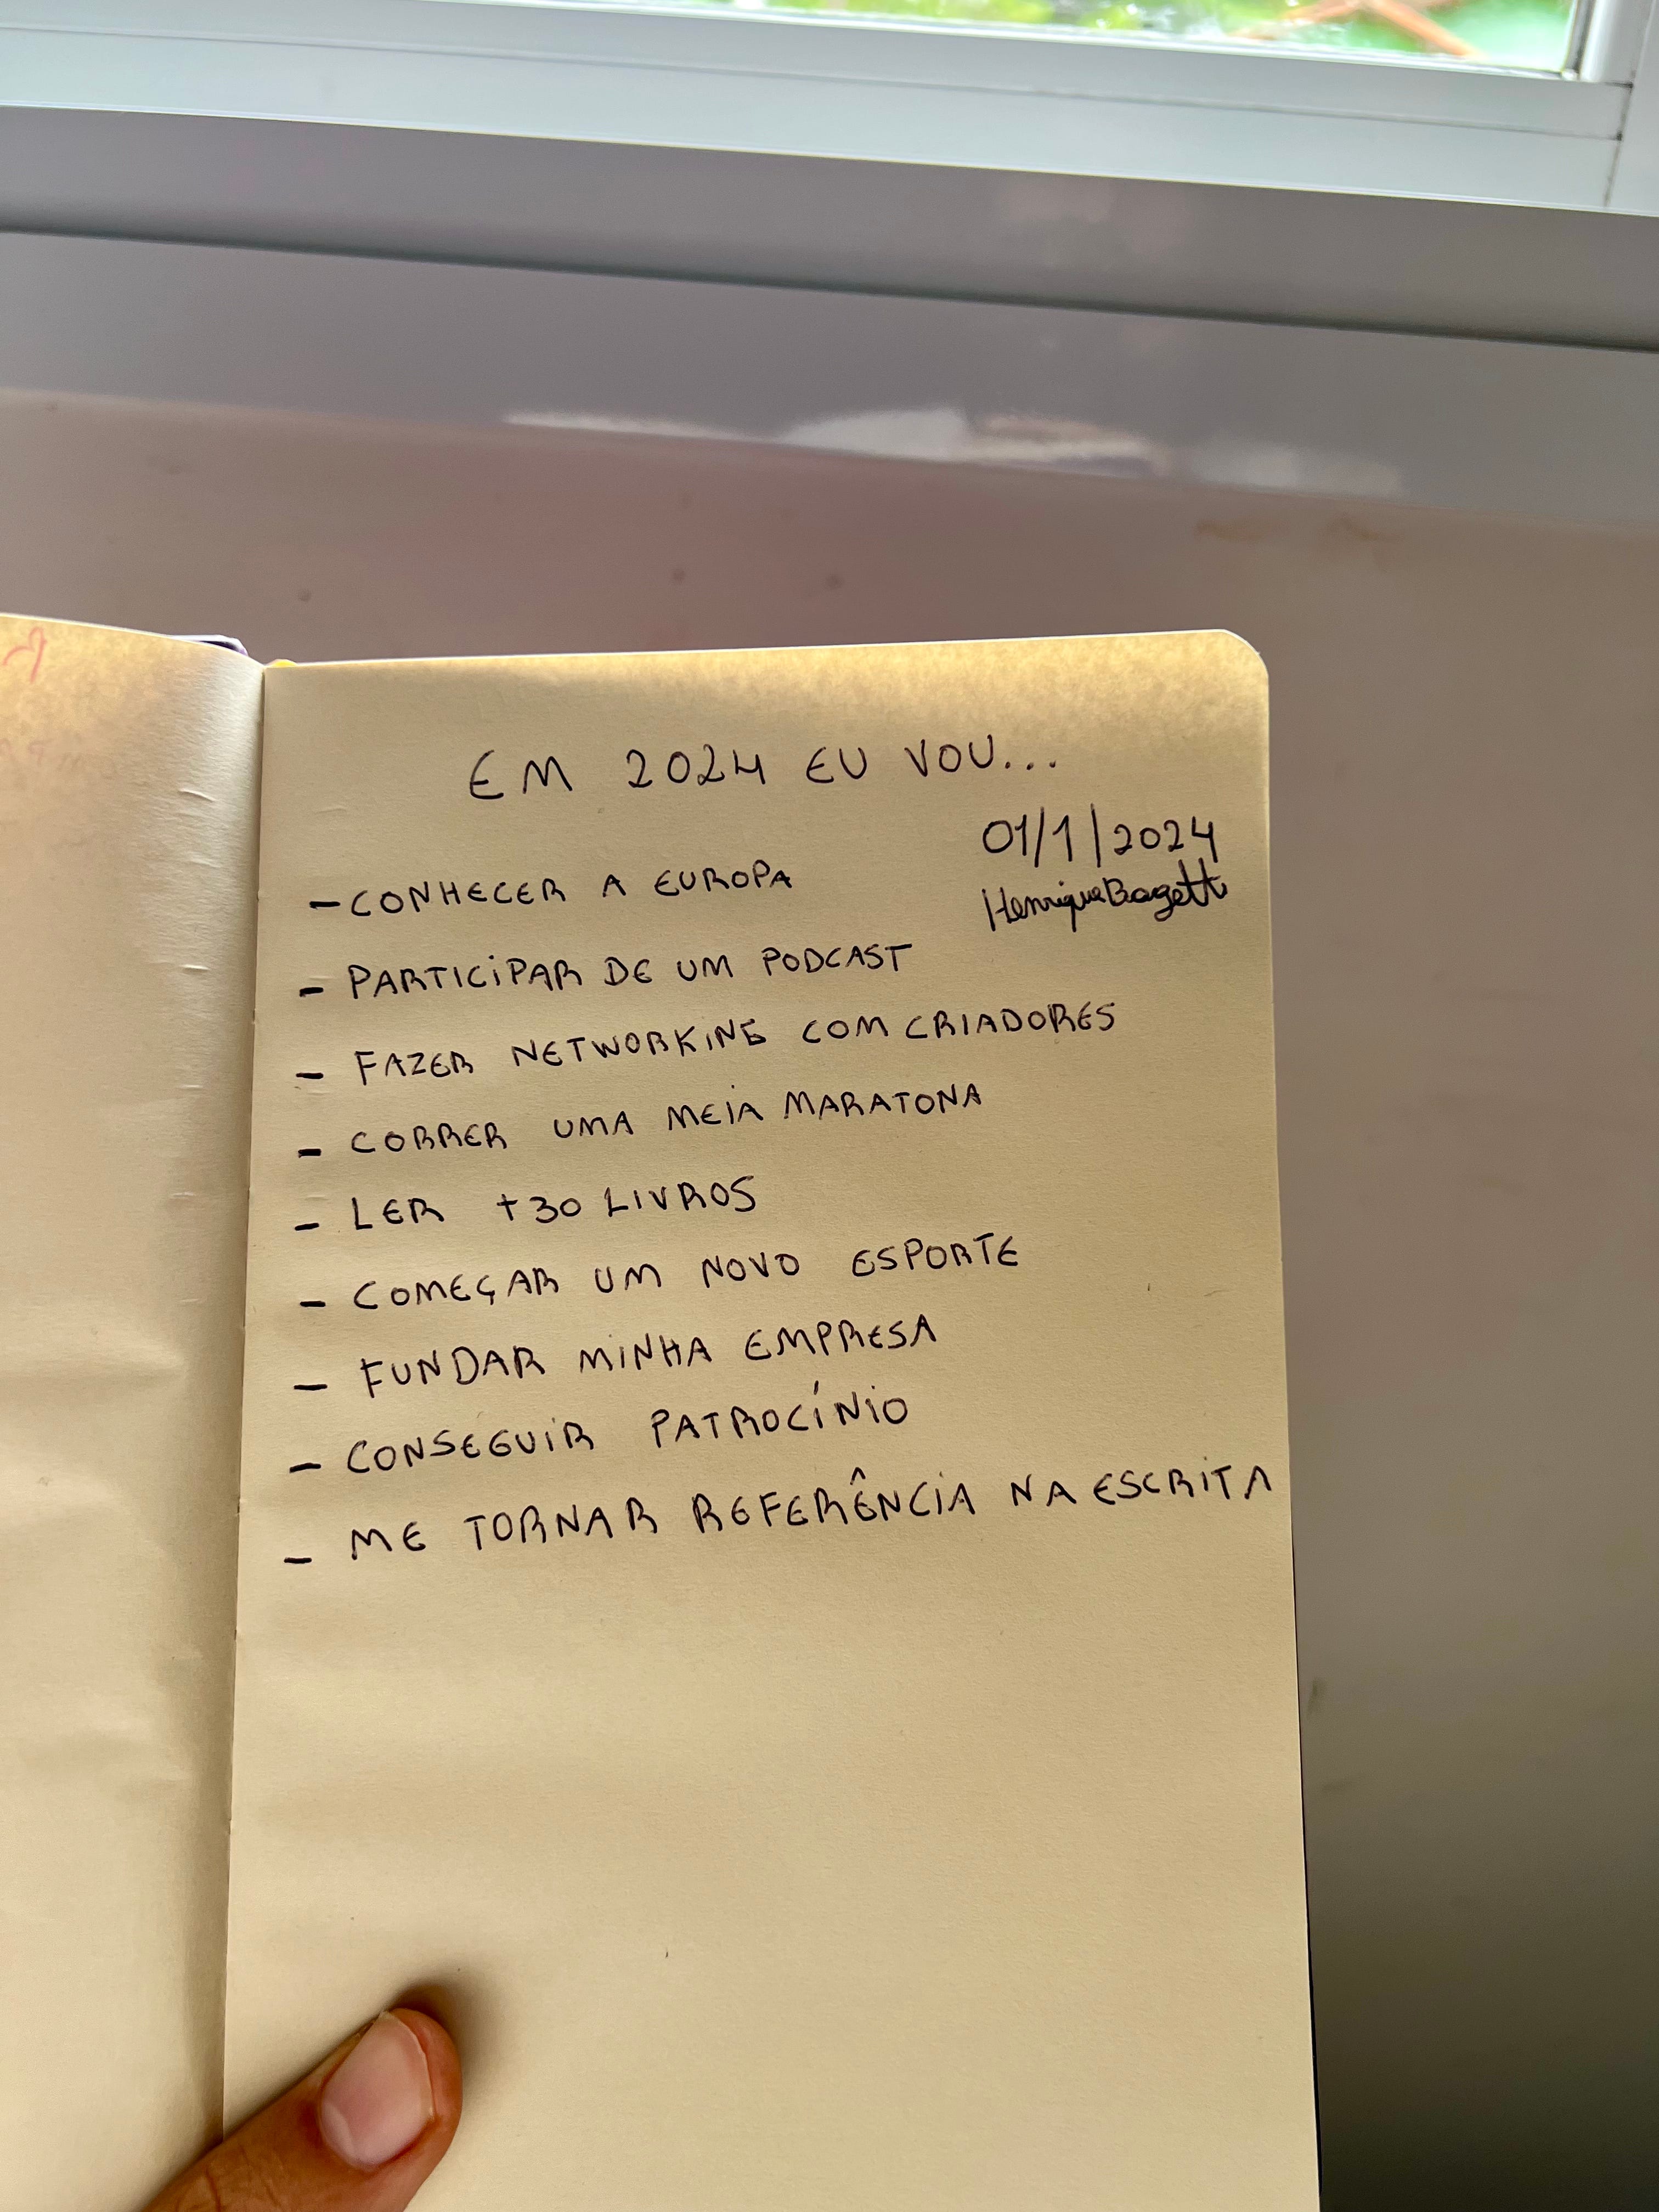 EM 2024 EU VOU...
01/1/2024
Henrique Bagetti
- CONHECER A EUROPA
- PARTICIPAR DE UM PODCAST
- FAZER NETWORKING COM CRIADORES
- CORRER UMA MEIA MARATONA
- LER +30 LIVROS
- COMEÇAR UM NOVO ESPORTE
- FUNDAR MINHA EMPRESA
- CONSEGUIR PATROCÍNIO
- ME TORNAR REFERÊNCIA NA ESCRITA